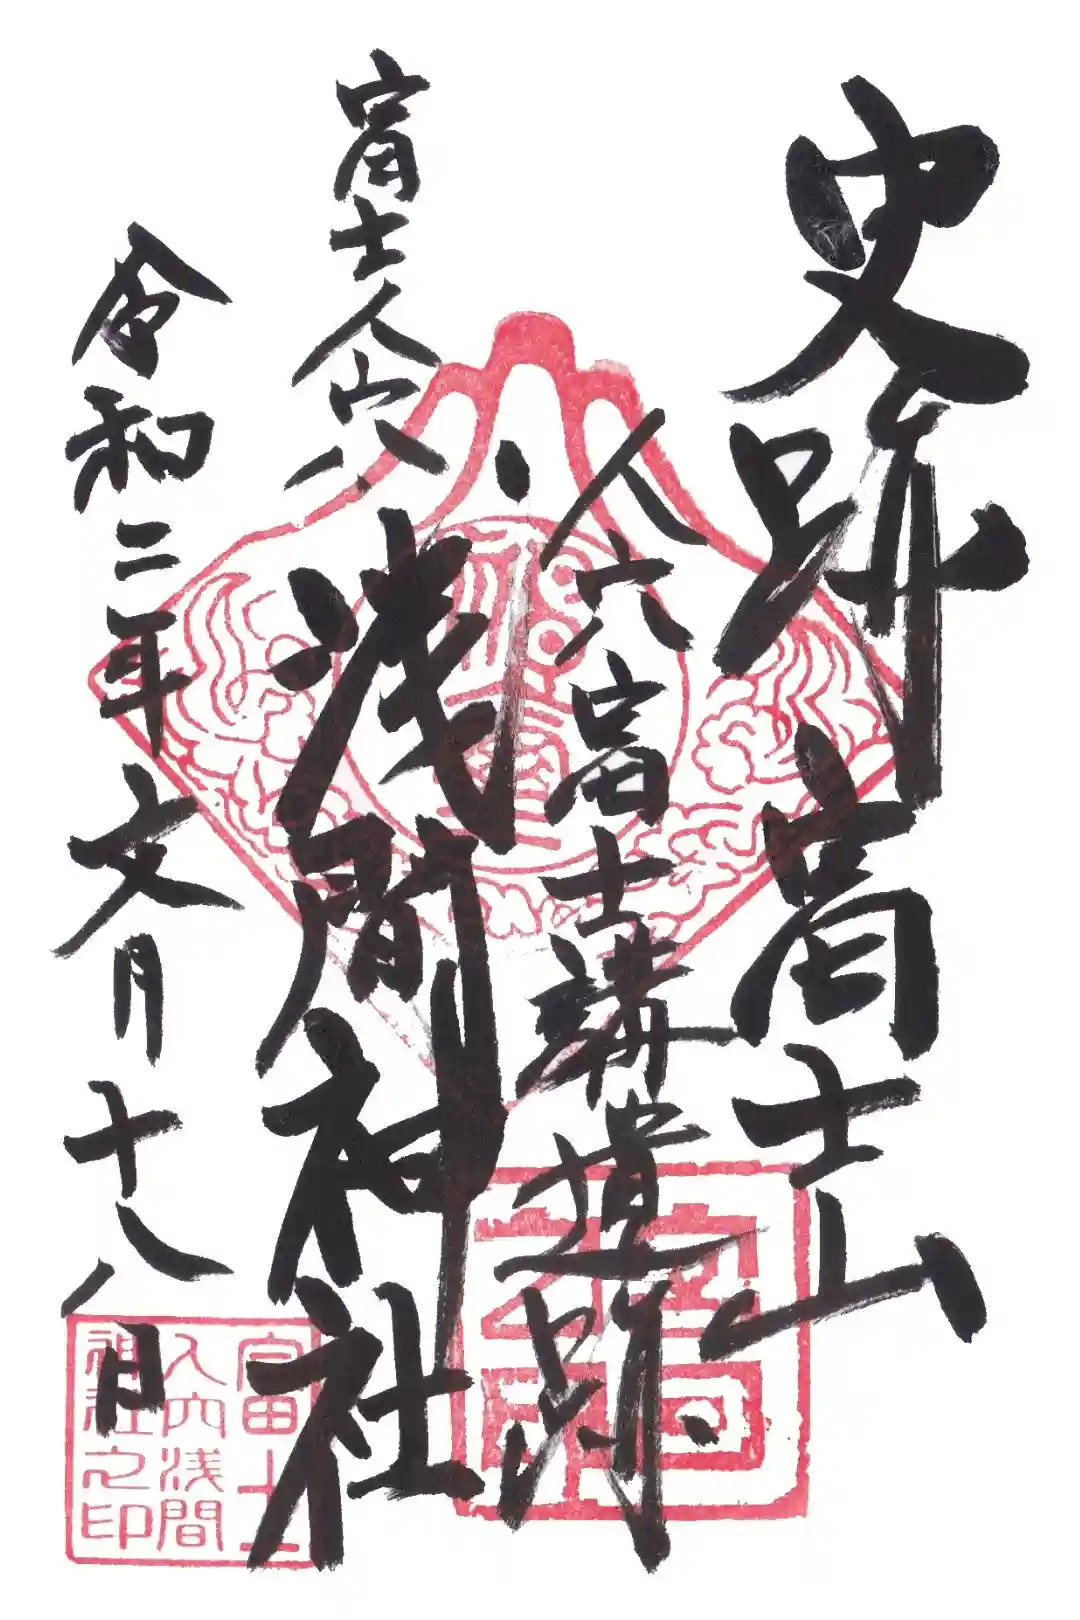 史跡 富士山
人穴富士講遺跡
富士人穴
浅間神社
令和二年文月十八日
富士山
人穴浅間
神社之印